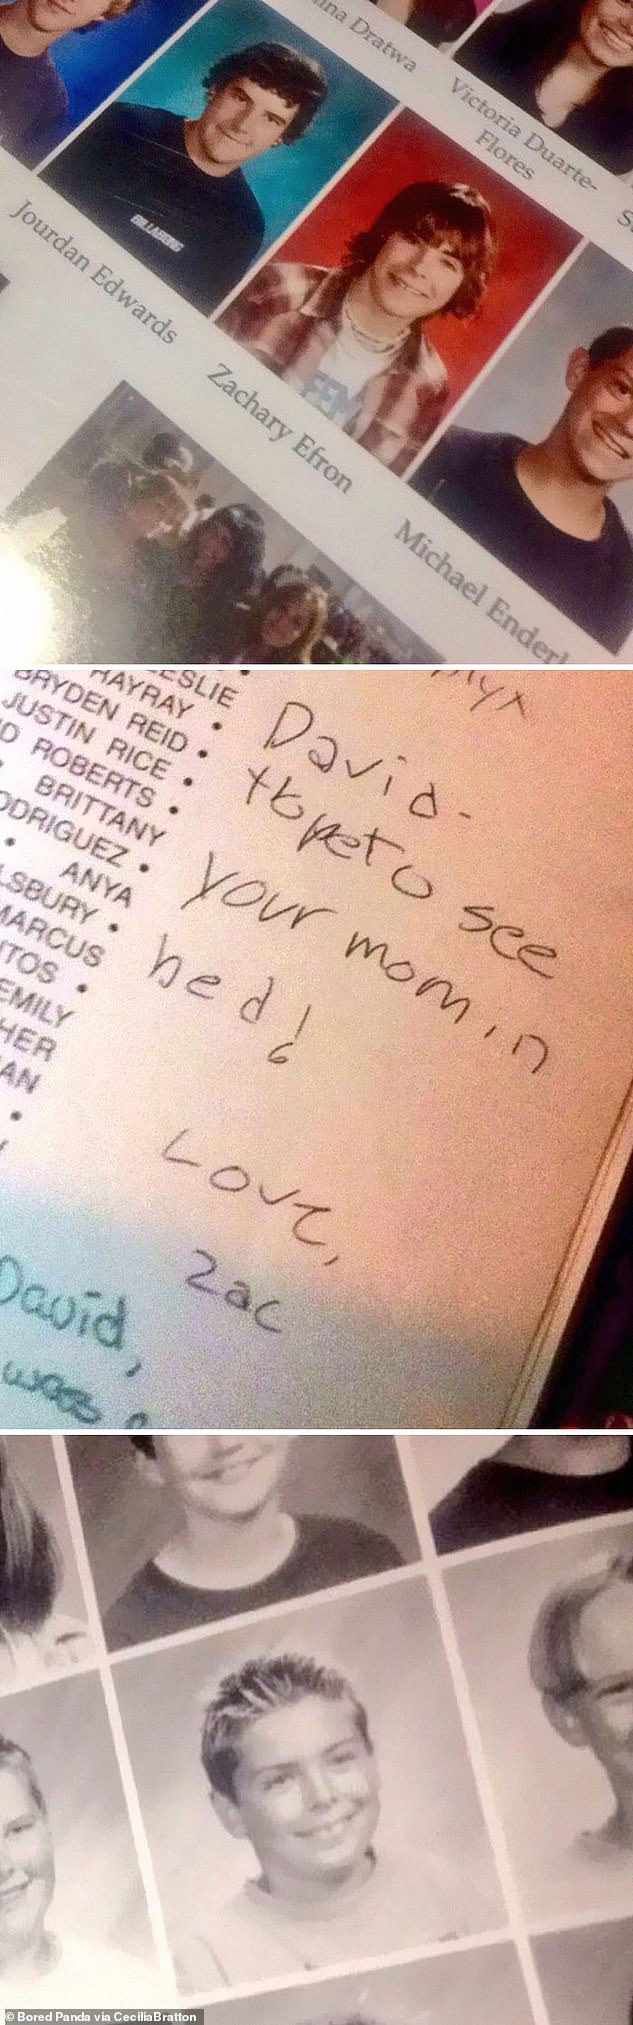 Dratwa
Victoria Duarte-
Flores
BILLABONG
Jourdan Edwards
Zachary Efron
Michael Enderl
LESLIE
HAYRAY •
BRYDEN REID •
JUSTIN RICE •
D ROBERTS •
BRITTANY
ODRIGUEZ •
• ANYA
LSBURY •
MARCUS
TOS •
EMILY
HER
AN
David-
Hope to see
your mom in
bed!
Love,
Zac
David,
© Bored Panda via CeciliaBratton